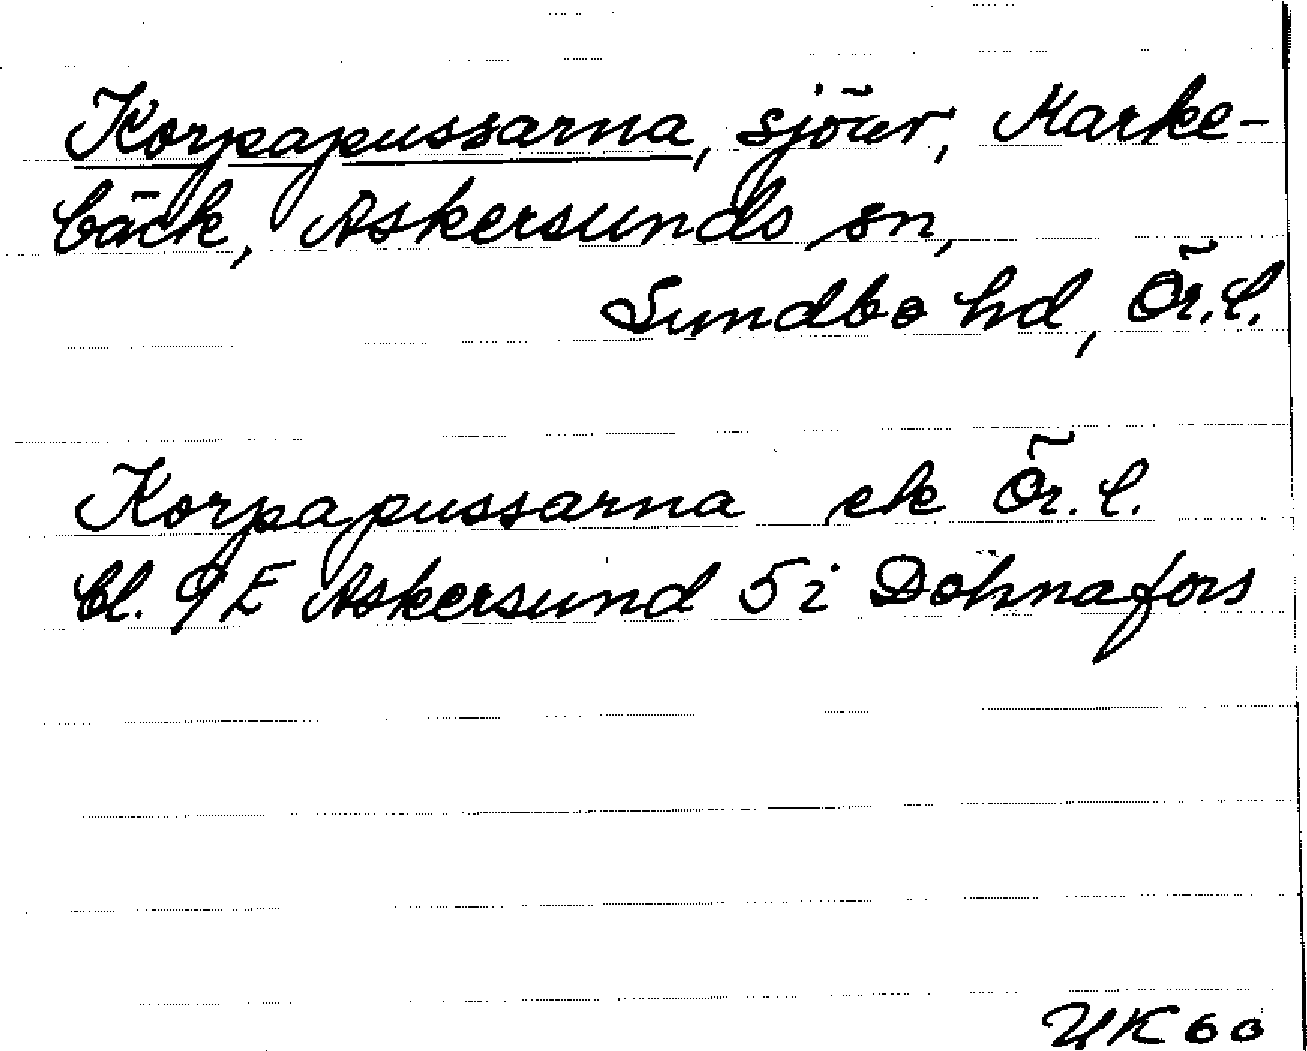 Korpapussarna, sjöar, Marke-
bäck, Askersunds sn,
Sundbo hd, Ör.l.
Korpapussarna ek Ör.l.
bl. 9E Askersund 5i Dohnafors
YK 60